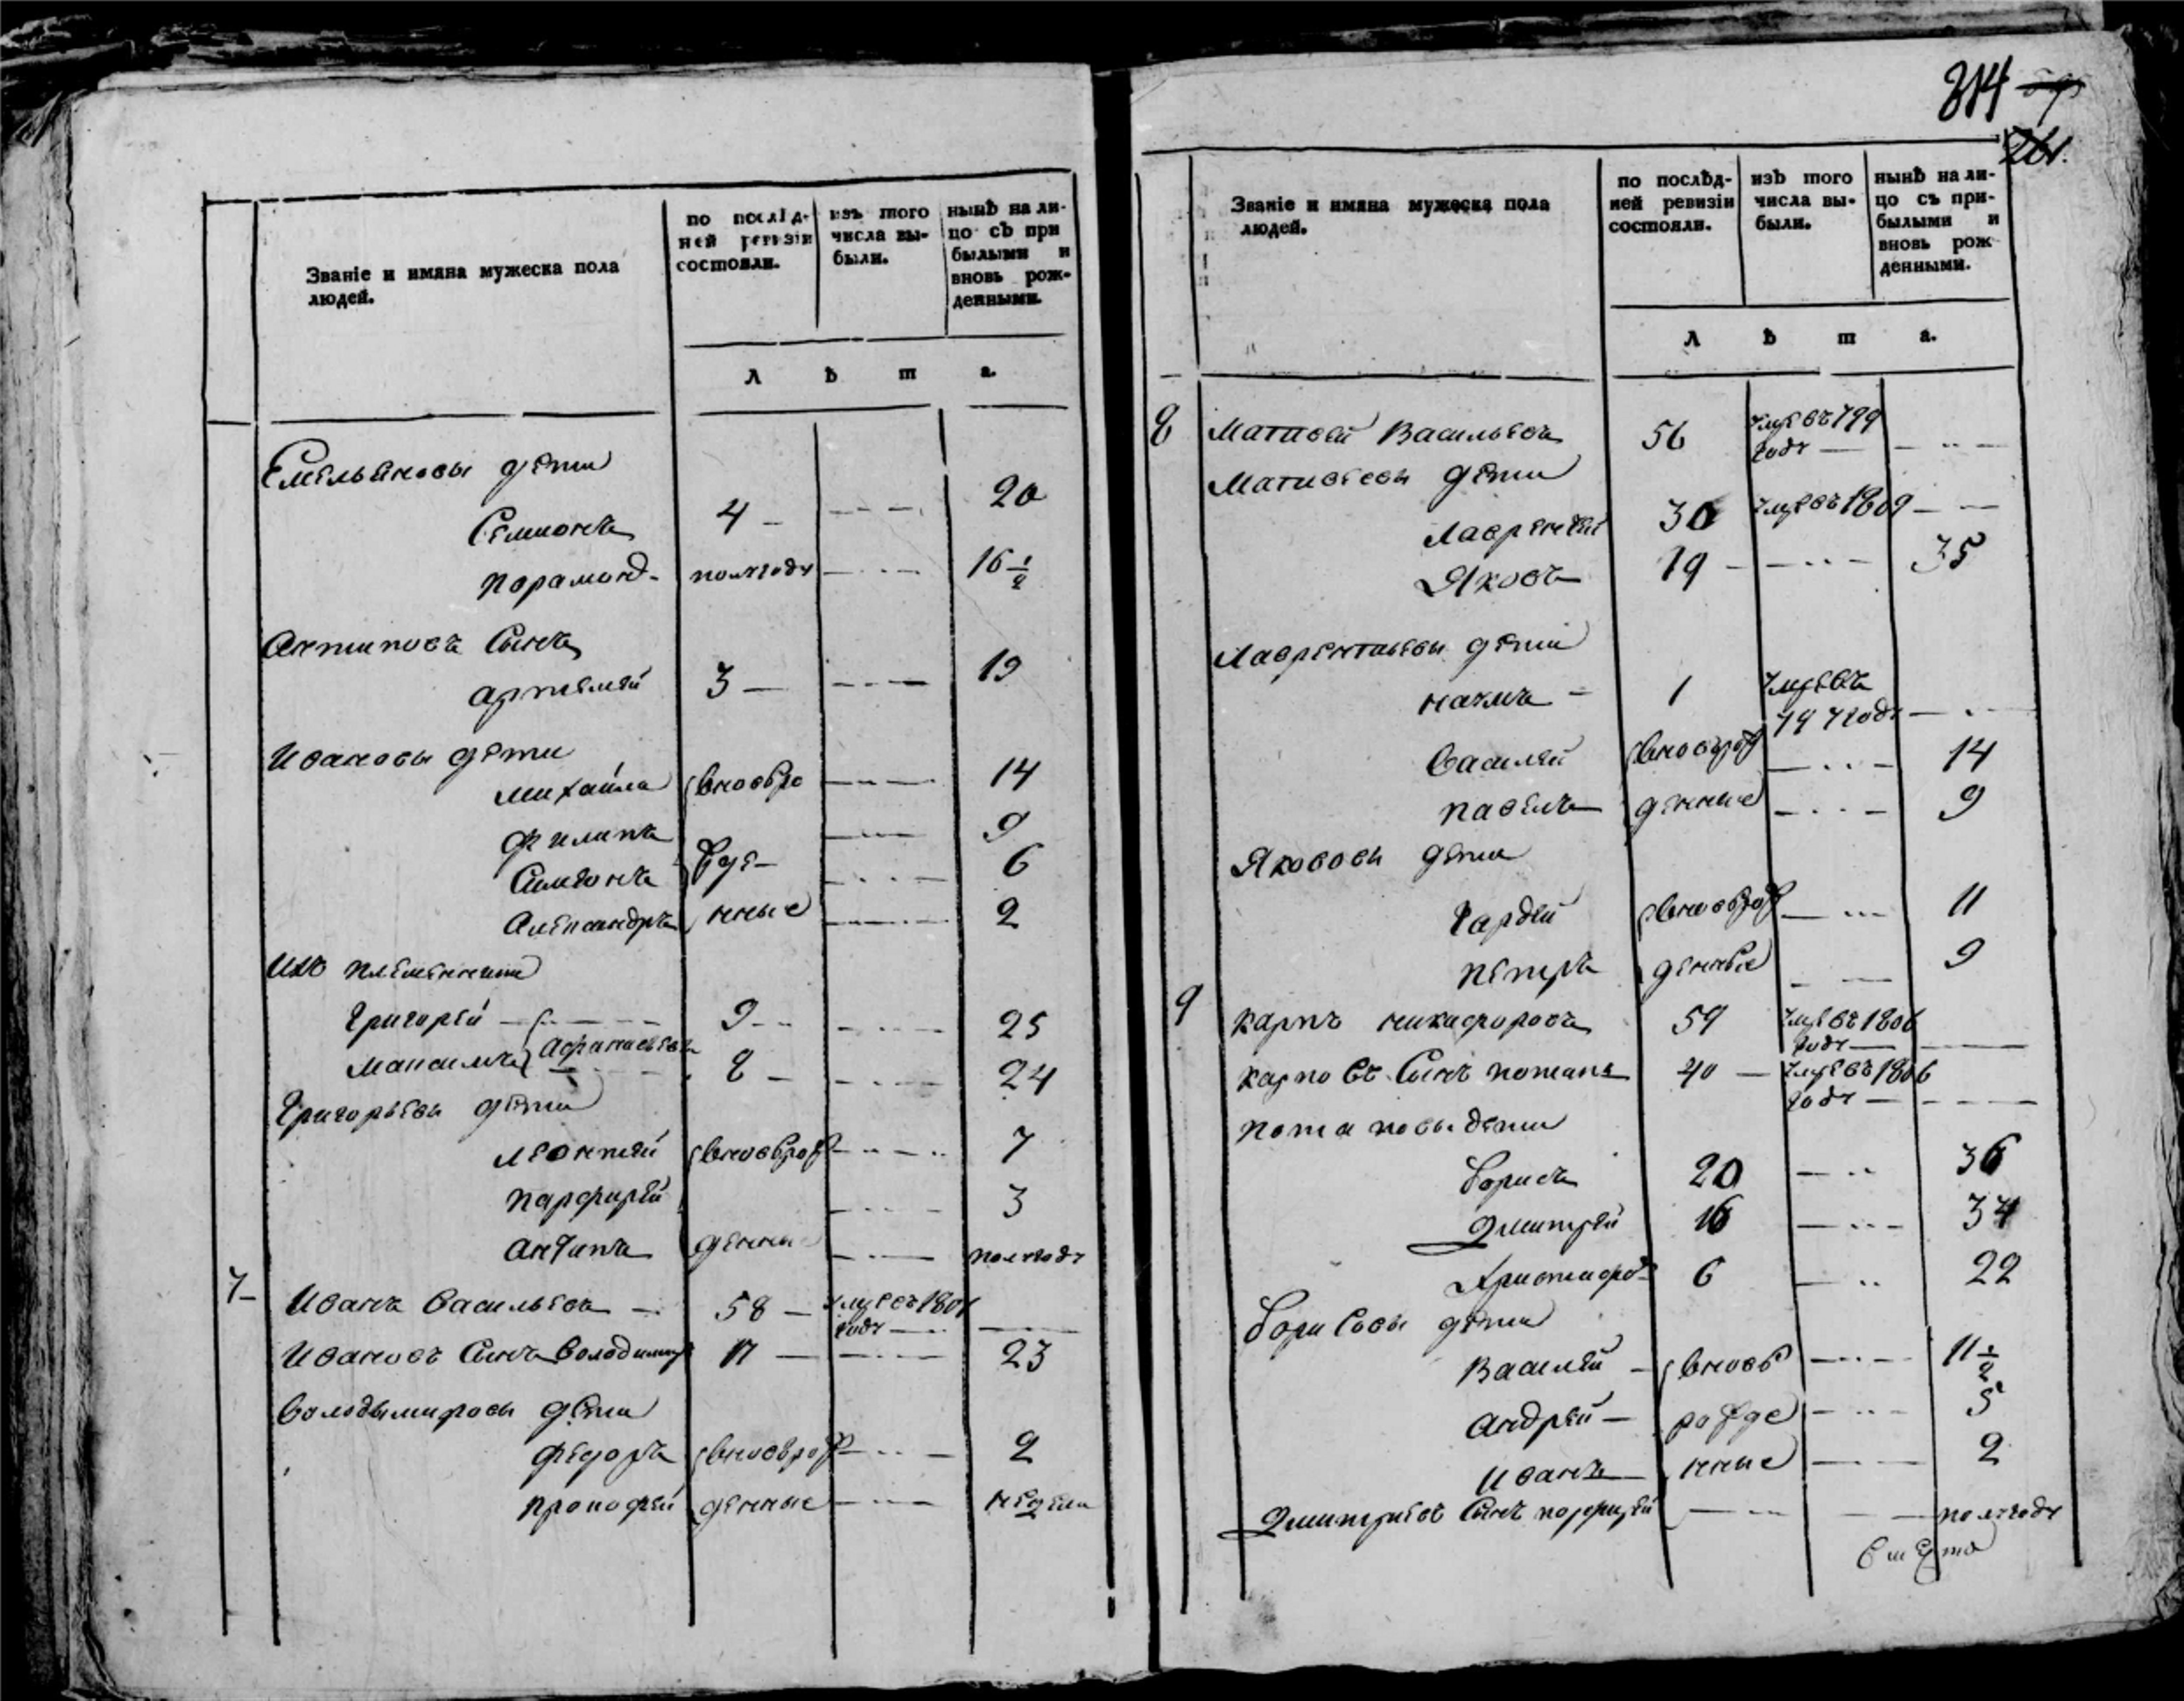 Званіе и имяна мужеска пола
людей.
по послѣд-
ней ревизіи
состояли.
изъ того
числа вы-
были.
нынѣ на ли-
цо съ при
былыми и
вновь рож-
денными.
л ѣ т а.
Емельяновы дети
Семионъ 4 20
Парамонд полгоду 16 1/2
Антиповъ Сынъ
артемей 3 19
Ивановы дети
михайла вновъро 14
филипъ 9
Симеонъ жде 6
Александръ нные 2
Ихъ племенники
Григорей 9 25
Максимъ Афанасьевы 8 24
Григорьевы дети
леонтей вновърож 7
парфирей 3
антипъ денные полгоду
7 Иванъ Васильевъ 58 умре въ 1801
году
Ивановъ Сынъ Володимиръ 17 23
Володымировы дети
федоръ вновърож 2
прокофей денные недели
314
261.
Званіе и имяна мужеска пола
людей.
по послѣд-
ней ревизіи
состояли.
изъ того
числа вы-
были.
нынѣ на ли-
цо съ при-
былыми и
вновь рож
денными.
л ѣ т а.
8 Матвей Васильевъ 56 умре въ 799
году
Матвеевы дети
лаврентей 30 умре въ 1809
Яковъ 19 35
лаврентьевы дети
наумъ 1 умре въ
797 году
Василей вновърож 14
павелъ денные 9
Якововы дети
Гардей вновърож 11
петръ денные 9
9 карпъ никифоровъ 59 умре въ 1806
году
карповъ Сынъ потапъ 40 умре въ 1806
году
потаповы дети
борисъ 20 36
Дмитрей 16 34
Христифор 6 22
борисовы дети
Василей вновь 11 1/2
андрей рожде 5
Иванъ нные 2
Дмитриевъ Сынъ порфирей полгоду